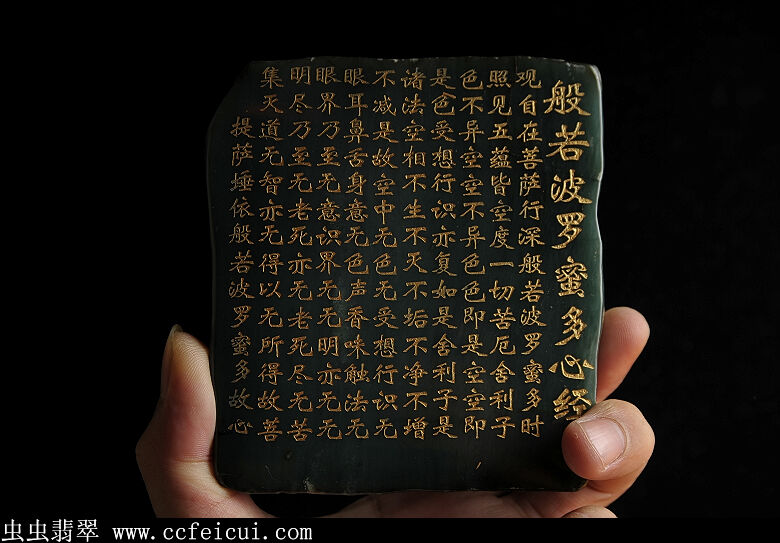 般若波罗蜜多心经
观自在菩萨行深般若波罗蜜多时
照见五蕴皆空度一切苦厄舍利子
色不异空空不异色色即是空空即
是色受想行识亦复如是舍利子是
诸法空相不生不灭不垢不净不增
不减是故空中无色无受想行识无
眼耳鼻舌身意无色声香味触法无
眼界乃至无意识界无无明亦无无
明尽乃至无老死亦无老死尽无苦
集灭道无智亦无得以无所得故菩
提萨埵依般若波罗蜜多故心
虫虫翡翠 www.ccfeicui.com